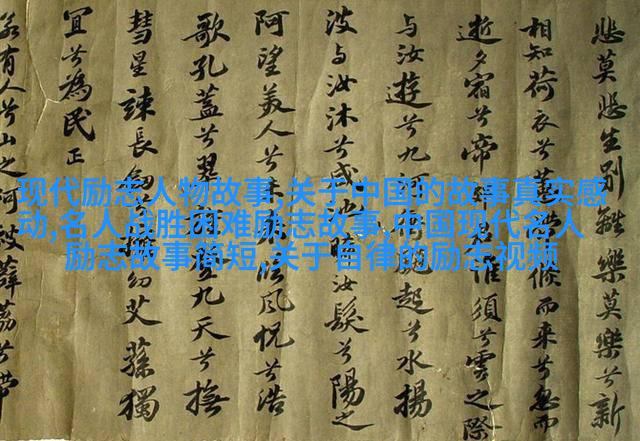 现代励志人物故事,关于中国的故事真实感
动,名人战胜困难励志故事,中国现代名人
励志故事简短,关于自律的励志视频
悲莫悲生別離樂莫樂兮新
相知荷衣兮而來兮忽而
逝夕宿兮帝誰須兮雲之際
與汝遊兮九起兮水揚
波與汝沐兮咸池晞汝髮兮陽之
阿望美人兮臨風怳兮浩
歌孔蓋兮翠九天兮撫
彗星竦長劍幼艾蓀獨
宜兮為民正
若有人兮山之阿被薜荔兮帶